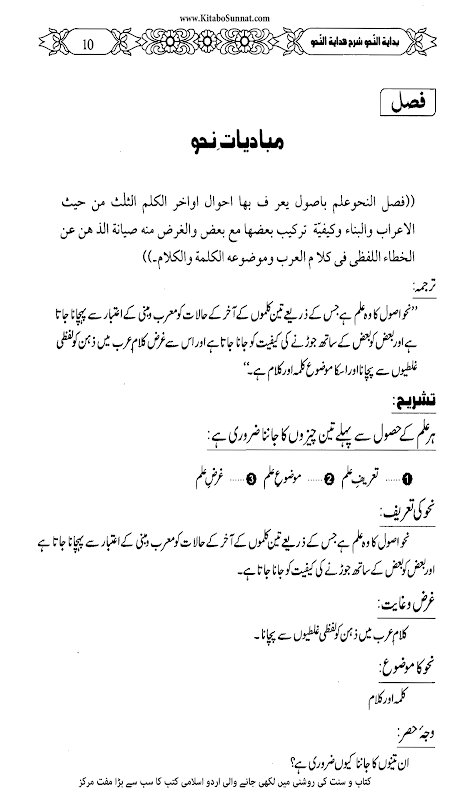 www.KitaboSunnat.com
بداية النَّحو شرح هداية النَّحو
10
فصل
مبادیاتِ نحو
((فصل النحوعلم باصول يعرف بها احوال اواخر الكلم الثلٰث من حيث
الاعراب والبناء وكيفيّة تركيب بعضها مع بعض والغرض منه صيانة الذهن عن
الخطاء اللفظى فى كلام العرب وموضوعه الكلمة والكلام۔))
ترجمہ:
’’نحو اصول کا وہ علم ہے جس کے ذریعے تین کلموں کے آخر کے حالات کو معرب و مبنی کے اعتبار سے پہچانا جاتا
ہے اور بعض کو بعض کے ساتھ جوڑنے کی کیفیت کو جانا جاتا ہے اور اس سے غرض کلام عرب میں ذہن کو لفظی
غلطیوں سے بچانا اور اسکا موضوع کلمہ اور کلام ہے۔‘‘
تشریح:
ہر علم کے حصول سے پہلے تین چیزوں کا جاننا ضروری ہے:
❶ ...... تعریفِ علم ❷ ...... موضوعِ علم ❸ ...... غرضِ علم
نحو کی تعریف:
نحو اصول کا وہ علم ہے جس کے ذریعے تین کلموں کے آخر کے حالات کو معرب و مبنی کے اعتبار سے پہچانا جاتا ہے
اور بعض کو بعض کے ساتھ جوڑنے کی کیفیت کو جانا جاتا ہے۔
غرض و غایت:
کلام عرب میں ذہن کو لفظی غلطیوں سے بچانا۔
نحو کا موضوع:
کلمہ اور کلام
وجۂ حصر:
ان تینوں کا جاننا کیوں ضروری ہے؟
کتاب و سنت کی روشنی میں لکھی جانے والی اردو اسلامی کتب کا سب سے بڑا مفت مرکز